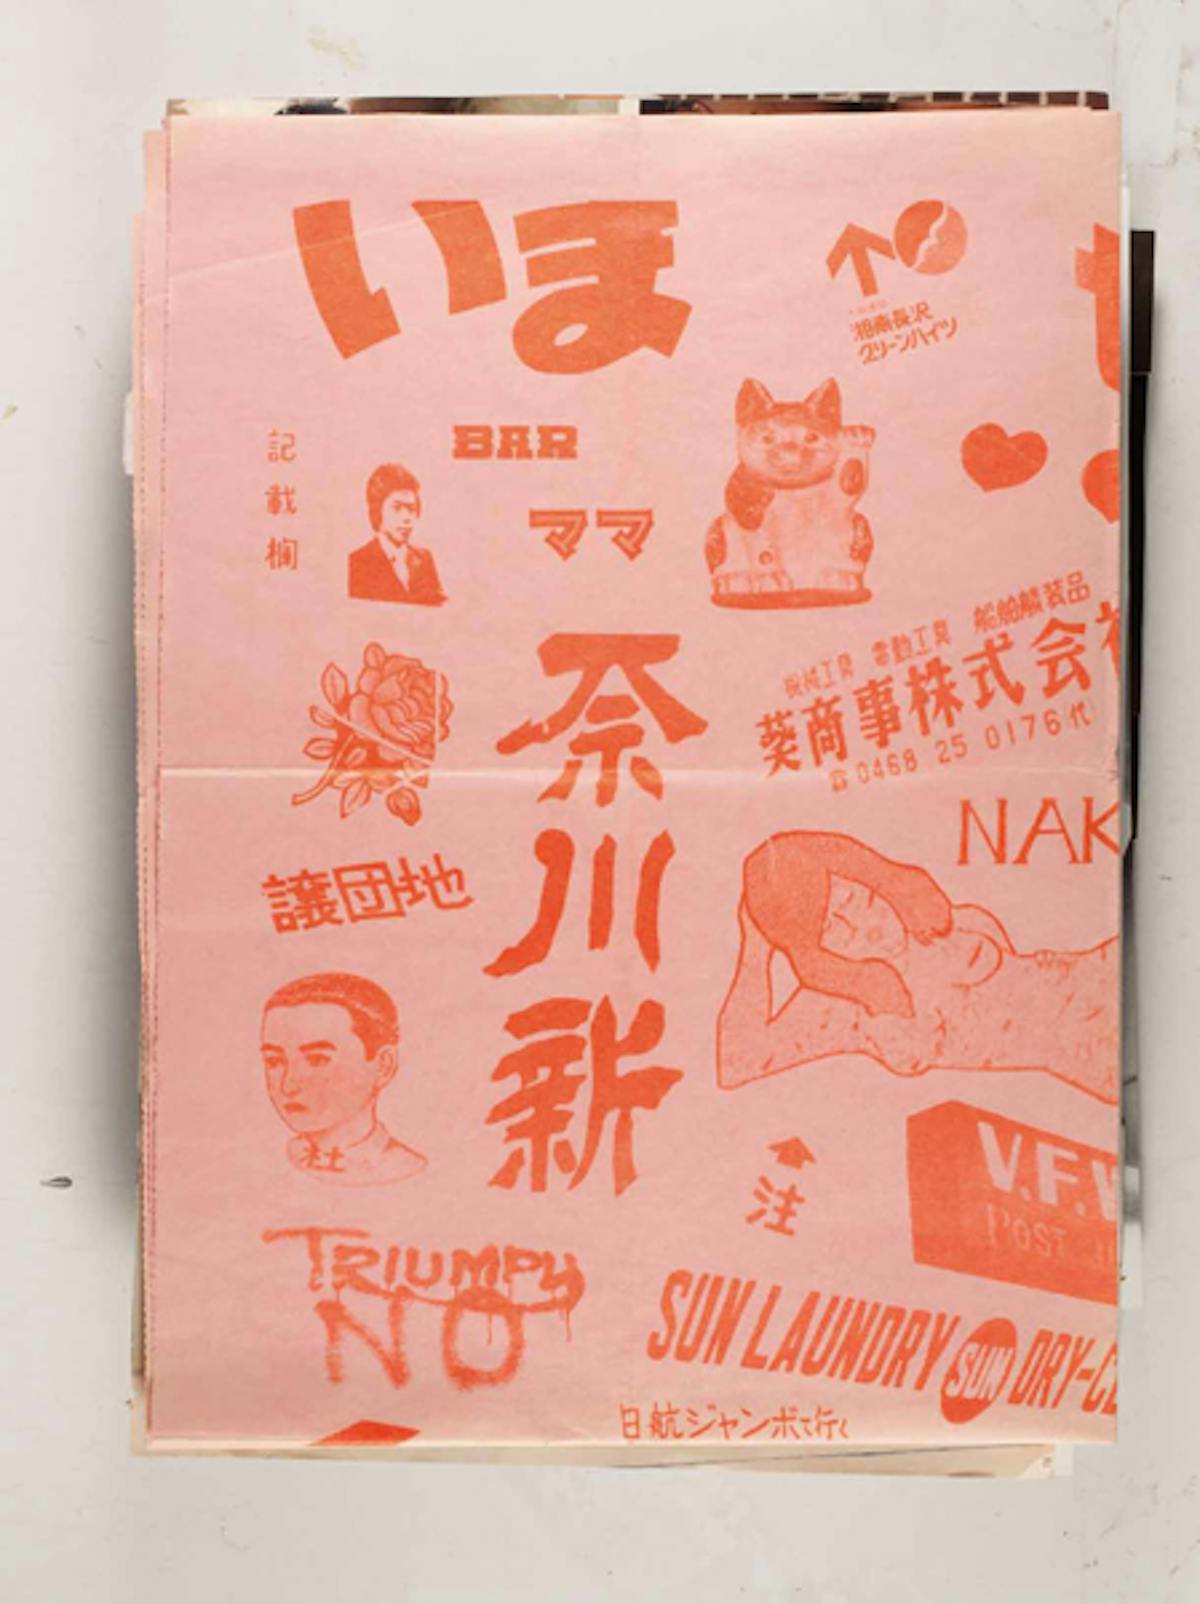 いま
湘南長沢
グリーンハイツ
BAR
記載欄
ママ
機械工具 電動工具 船舶艤装品
葵商事株式会社
☎0468 25 0176代
奈川新
NAK
譲団地
社
V.F.W
POST
注
TRIUMPY
NO
SUN LAUNDRY SUN DRY-CL
日航ジャンボで行く